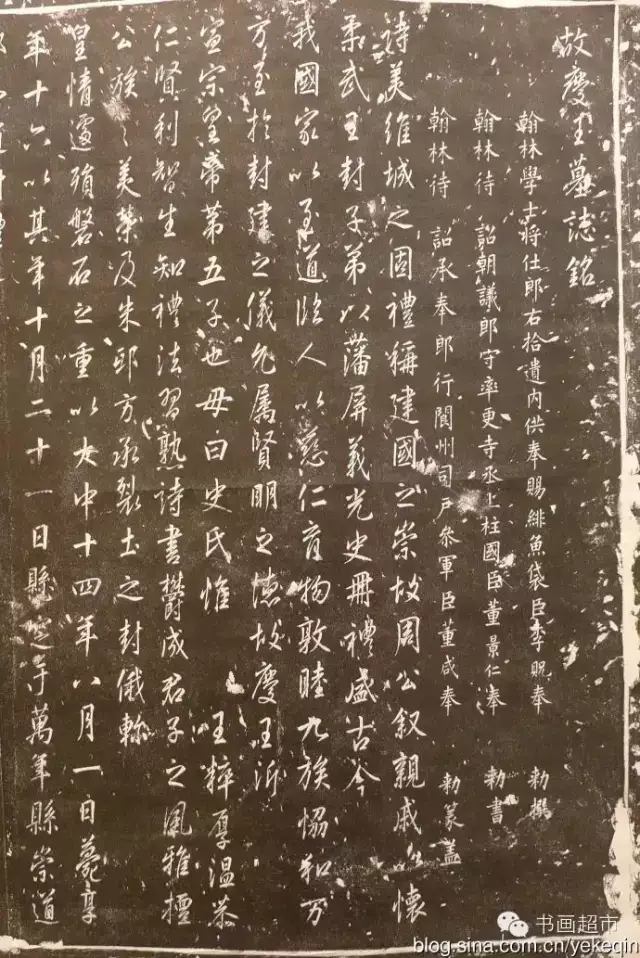 故慶王墓誌銘
翰林學士將仕郎右拾遺內供奉賜緋魚袋臣李貺奉 勅撰
翰林待 詔朝議郎守率更寺丞上柱國臣董景仁奉 勅書
翰林待 詔承奉郎行閬州司戶參軍臣董咸奉 勅篆蓋
詩美維城之固禮稱建國之崇故周公叙親戚以懷
柔武王封子弟以藩屏義光史冊禮盛古今
我國家以至道臨人以慈仁育物敦睦九族恊和万
方至於封建之儀允属賢明之德故慶王沂
宣宗皇帝第五子也母曰史氏惟 王粹厚温恭
仁賢利智生知禮法習熟詩書欝成君子之風雅擅
公族之美榮及朱邸方承裂土之封俄軫
皇情遽殞磐石之重以大中十四年八月一日薨享
年十六以其年十月二十一日縣窆于萬年縣崇道
书画超市
blog.sina.com.cn/yekeqin